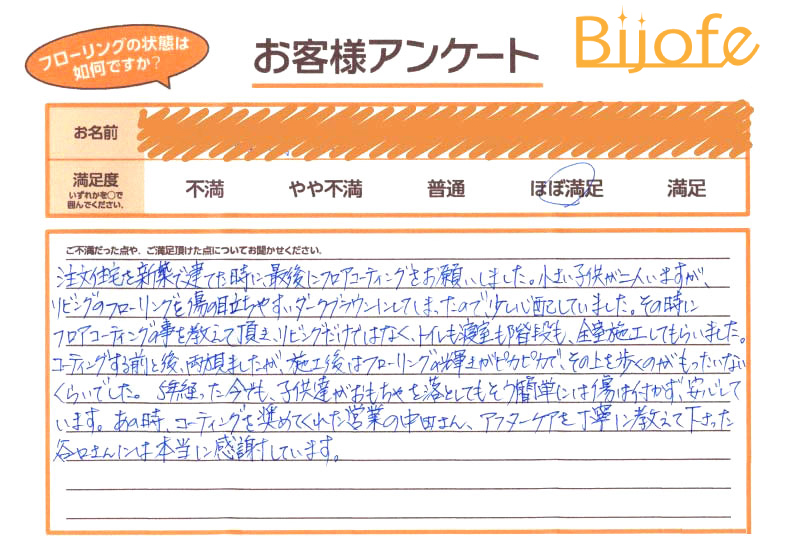 フローリングの状態は
如何ですか?
お客様アンケート
Bijofe
お名前
満足度
いずれかを○で
囲んでください。
不満 やや不満 普通 ほぼ満足 満足
ご不満だった点や、ご満足頂けた点についてお聞かせください。
注文住宅を新築で建てた時に、最後にフロアコーティングをお願いしました。小さい子供が二人いますが、
リビングのフローリングを傷の目立ちやすいダークブラウンにしてしまったので少し心配していました。その時に
フロアコーティングの事を教えて頂き、リビングだけではなく、トイレも寝室も階段も、全室施工してもらいました。
コーティングする前と後、両方見ましたが、施工後はフローリングの輝きがピカピカで、その上を歩くのがもったいない
くらいでした。 5年経った今でも、子供達がおもちゃを落としてもそう簡単には傷は付かず、安心して
います。あの時、コーティングを奨めてくれた営業の中田さん、アフターケアを丁寧に教えて下さった
谷口さんには本当に感謝しています。